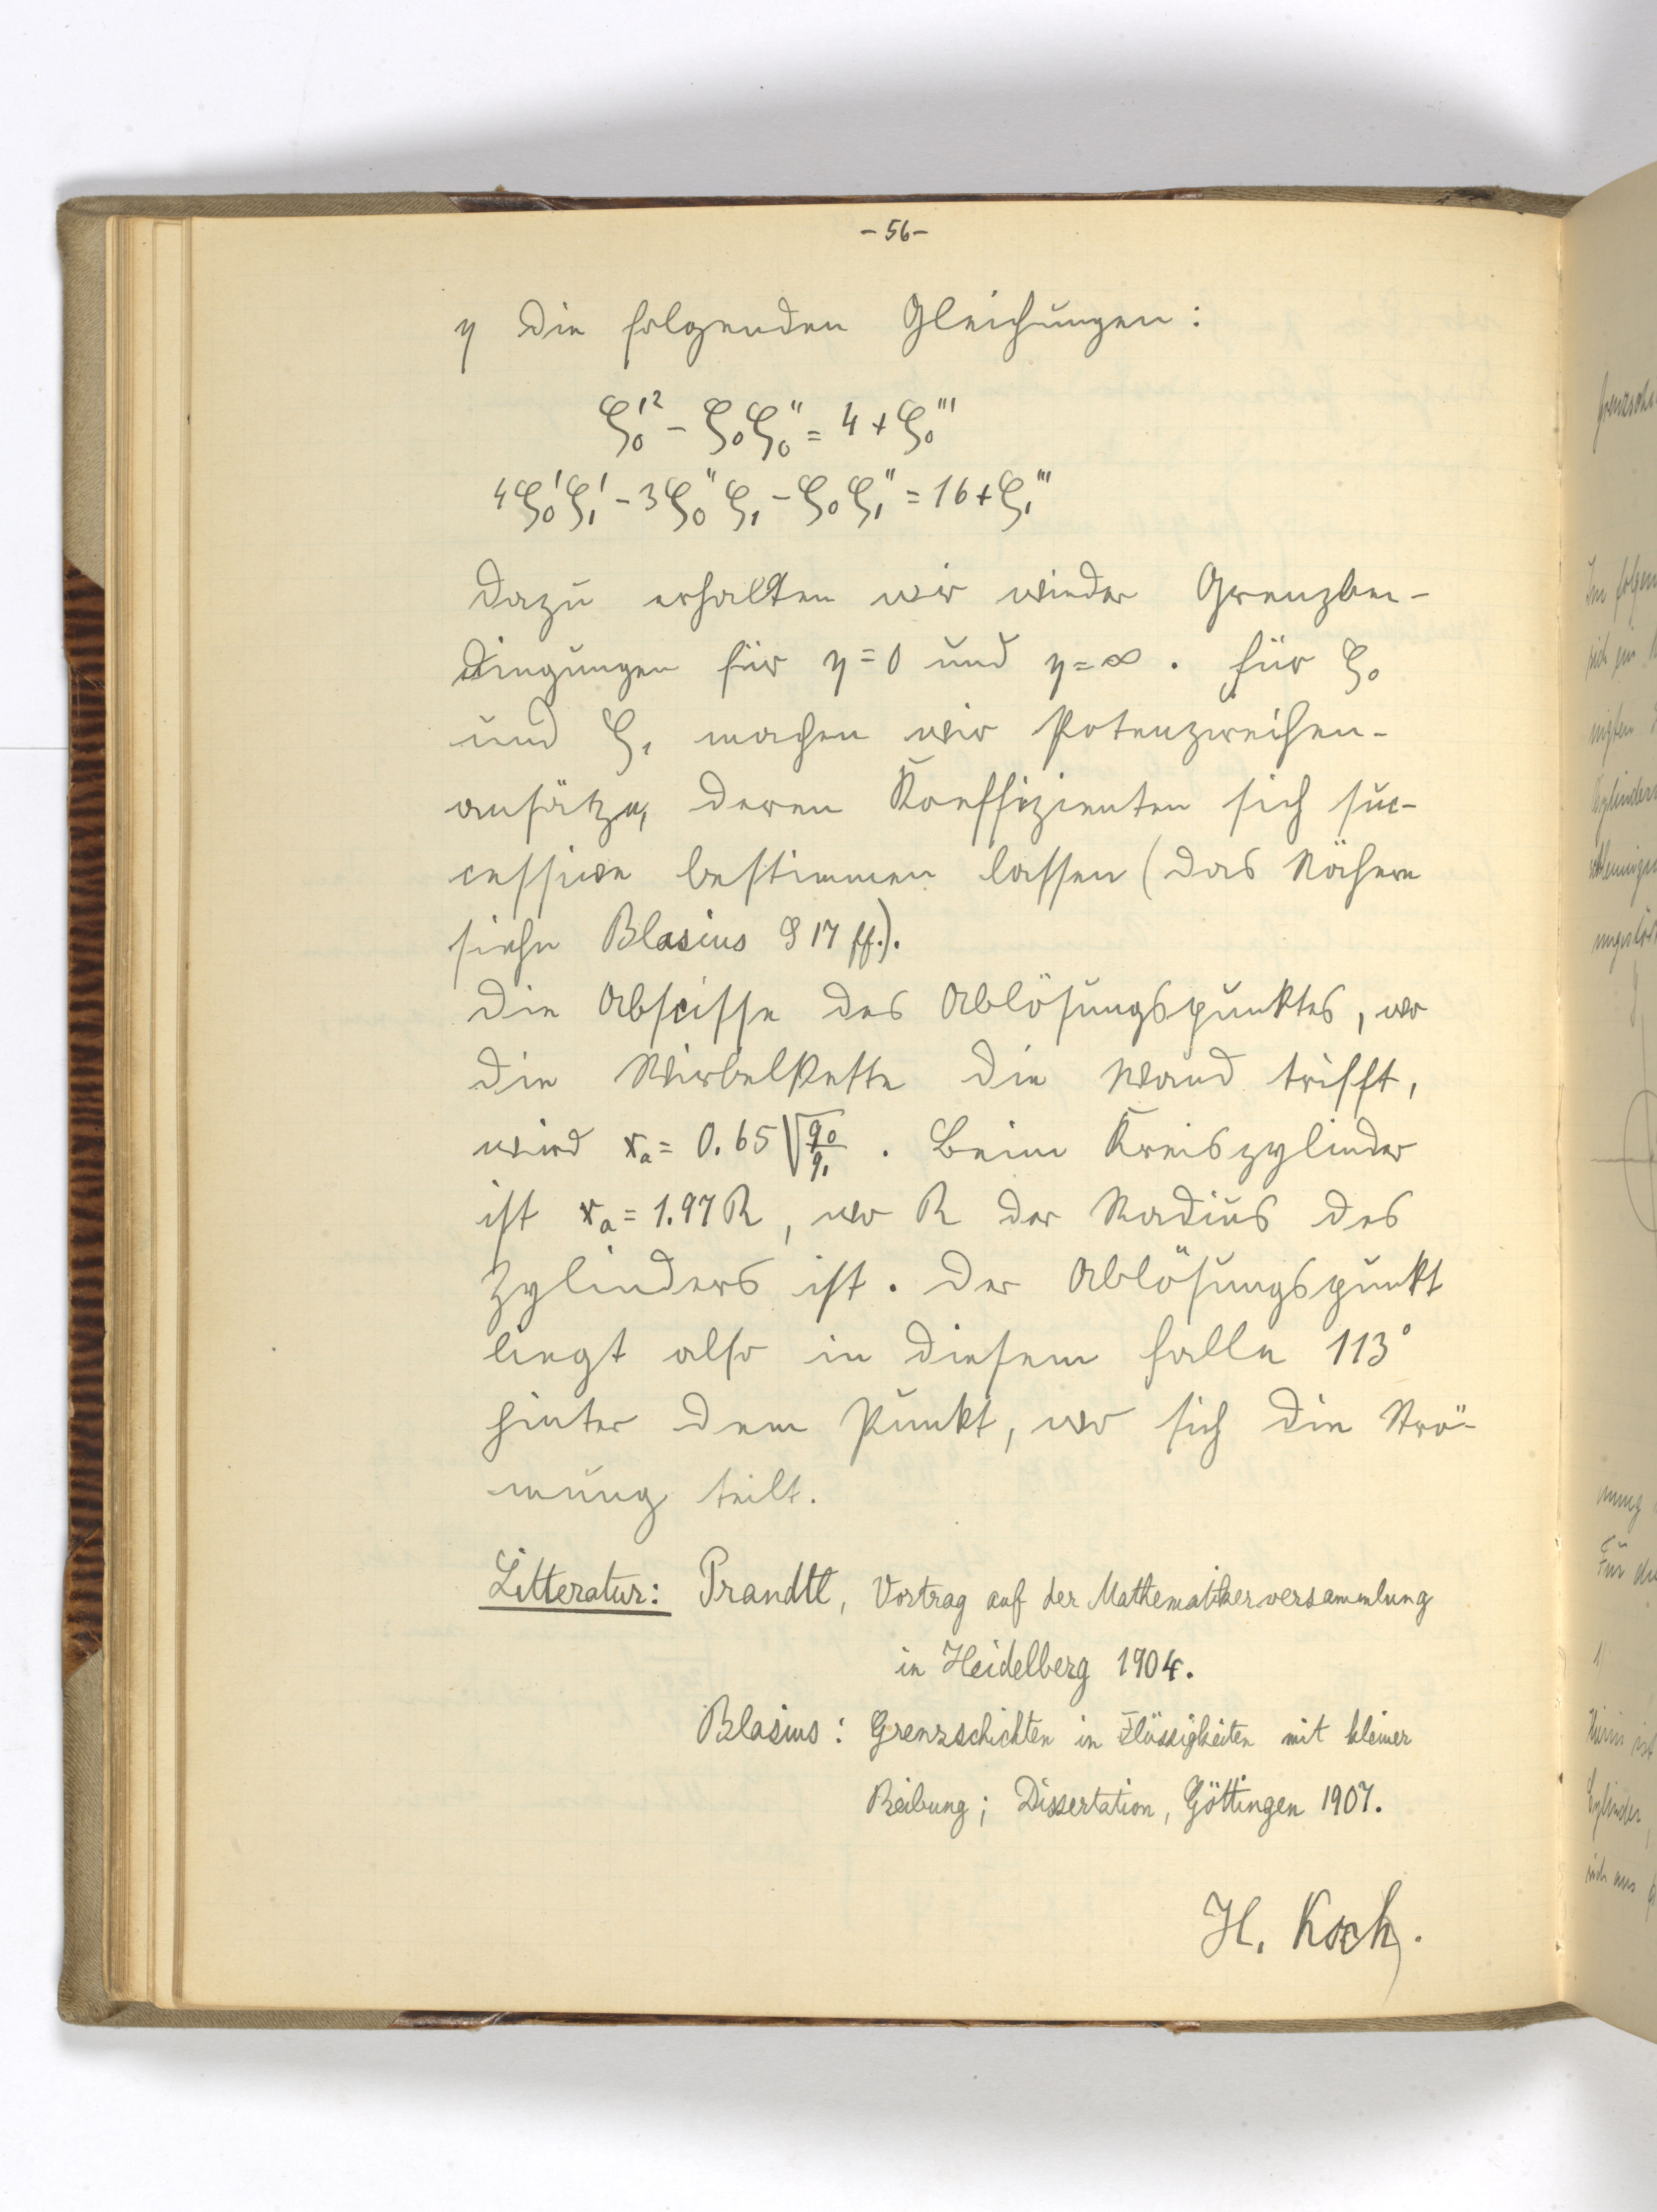 - 56 -
η die folgenden Gleichungen:
ζ₀'² - ζ₀ζ₀'' = 4 + ζ₀'''
4ζ₀'ζ₁' - 3ζ₀''ζ₁ - ζ₀ζ₁'' = 16 + ζ₁'''
Dazu erhalten wir wieder Grenzbe-
dingungen für η = 0 und η = ∞. Für ζ₀
und ζ₁ machen wir Potenzreihen-
ansätze, deren Koeffizienten sich suc-
cessive bestimmen lassen (das Nähere
siehe Blasius § 17 ff.).
Die Abscisse des Ablösungspunktes, wo
die Wirbelkette die Wand trifft,
wird xₐ = 0.65 √(q₀/q₁). Beim Kreiszylinder
ist xₐ = 1.97 R, wo R der Radius des
Zylinders ist. Der Ablösungspunkt
liegt also in diesem Falle 113°
hinter dem Punkt, wo sich die Strö-
mung teilt.
Litteratur: Prandtl, Vortrag auf der Mathematikerversammlung
in Heidelberg 1904.
Blasius: Grenzschichten in Flüssigkeiten mit kleiner
Reibung; Dissertation, Göttingen 1907.
H. Koch.